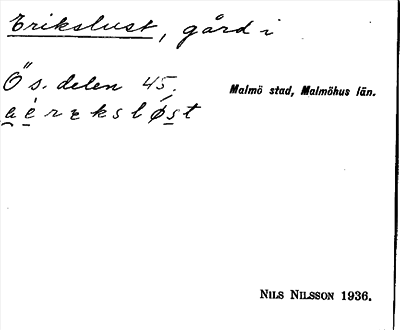 Erikslust, gård i
Ös. delen 45,
Malmö stad, Malmöhus län.
NILS NILSSON 1936.